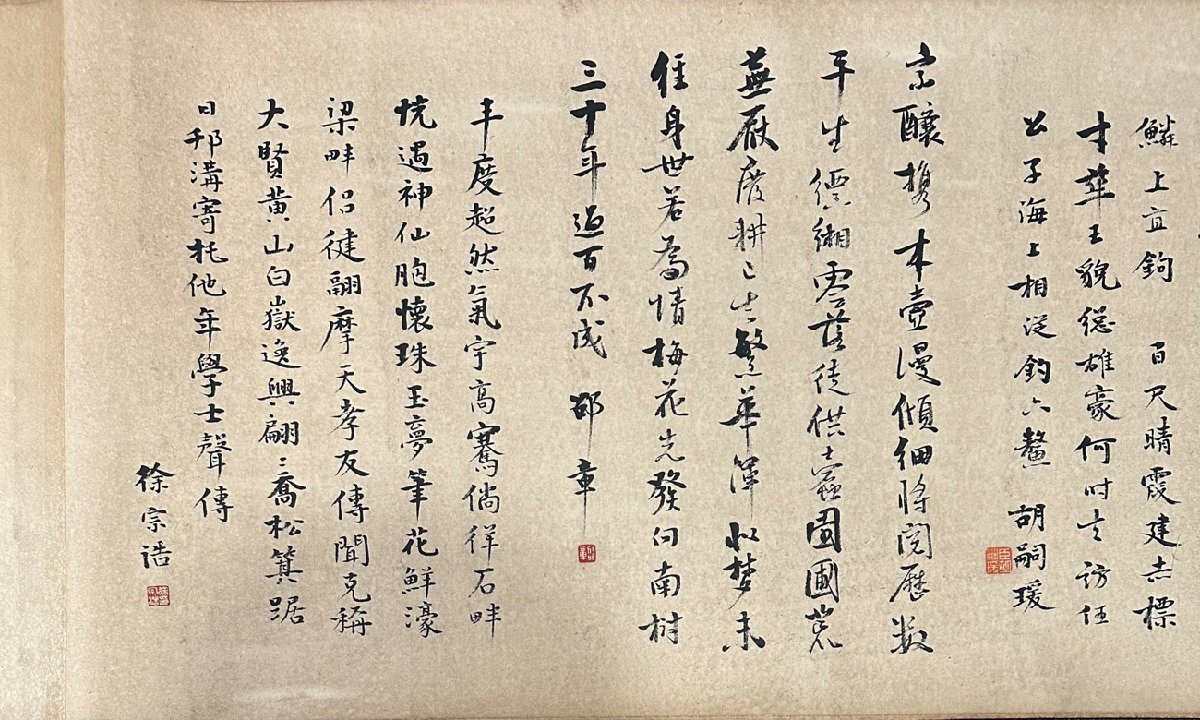 鱗上宜鉤　百尺晴霞建赤標
才華王貌總雄豪何時去訪任
公子海上相從釣六鼇　胡嗣瑗
家釀攜本壺漫傾細將閱歷數
平生價緗零落徒供蠹園圃荒
蕪厭廢耕已去繁華渾似梦未
任身世若為情梅花先發向南樹
三十年過百不成　邵章
丰度超然氣宇高騫倘徉石畔
恍遇神仙胞懷珠玉夢筆花鮮濠
梁畔侶健翮摩天孝友傳聞克稱
大賢黄山白嶽逸興翩〻喬松箕踞
日邗溝寄托他年學士聲傳
徐宗浩